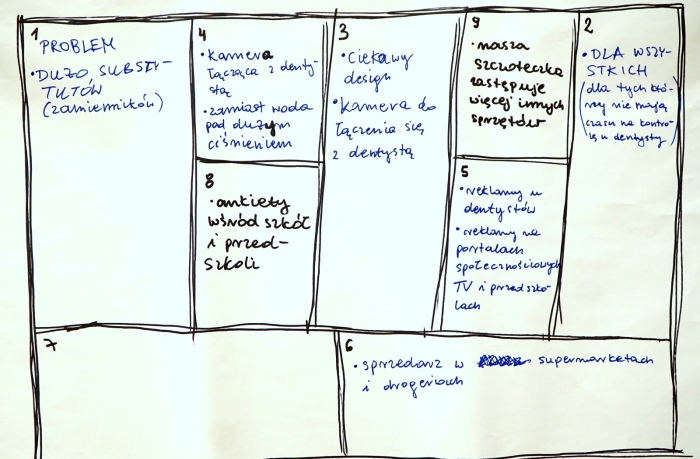 1
PROBLEM
• DUŻO, SUBSTY-
TUTÓW
(zamienników)
4
• kamera
łącząca z denty-
stą
• zamiast woda
pod dużym
ciśnieniem
8
• ankiety
wśród szkół
i przed-
szkoli
3
• Ciekawy
design
• kamera do
łączenia się
z dentystą
9
• nasza
szczoteczka
zastępuje
więcej innych
sprzętów
5
• reklamy u
dentystów
• reklamy na
portalach
społecznościowych
TV i przedszko-
lach
2
• DLA WSZY-
STKICH
(dla tych któ-
rzy nie mają
czasu na kontro-
lę u dentysty)
7
6
• sprzedarz w supermarketach
i drogeriach